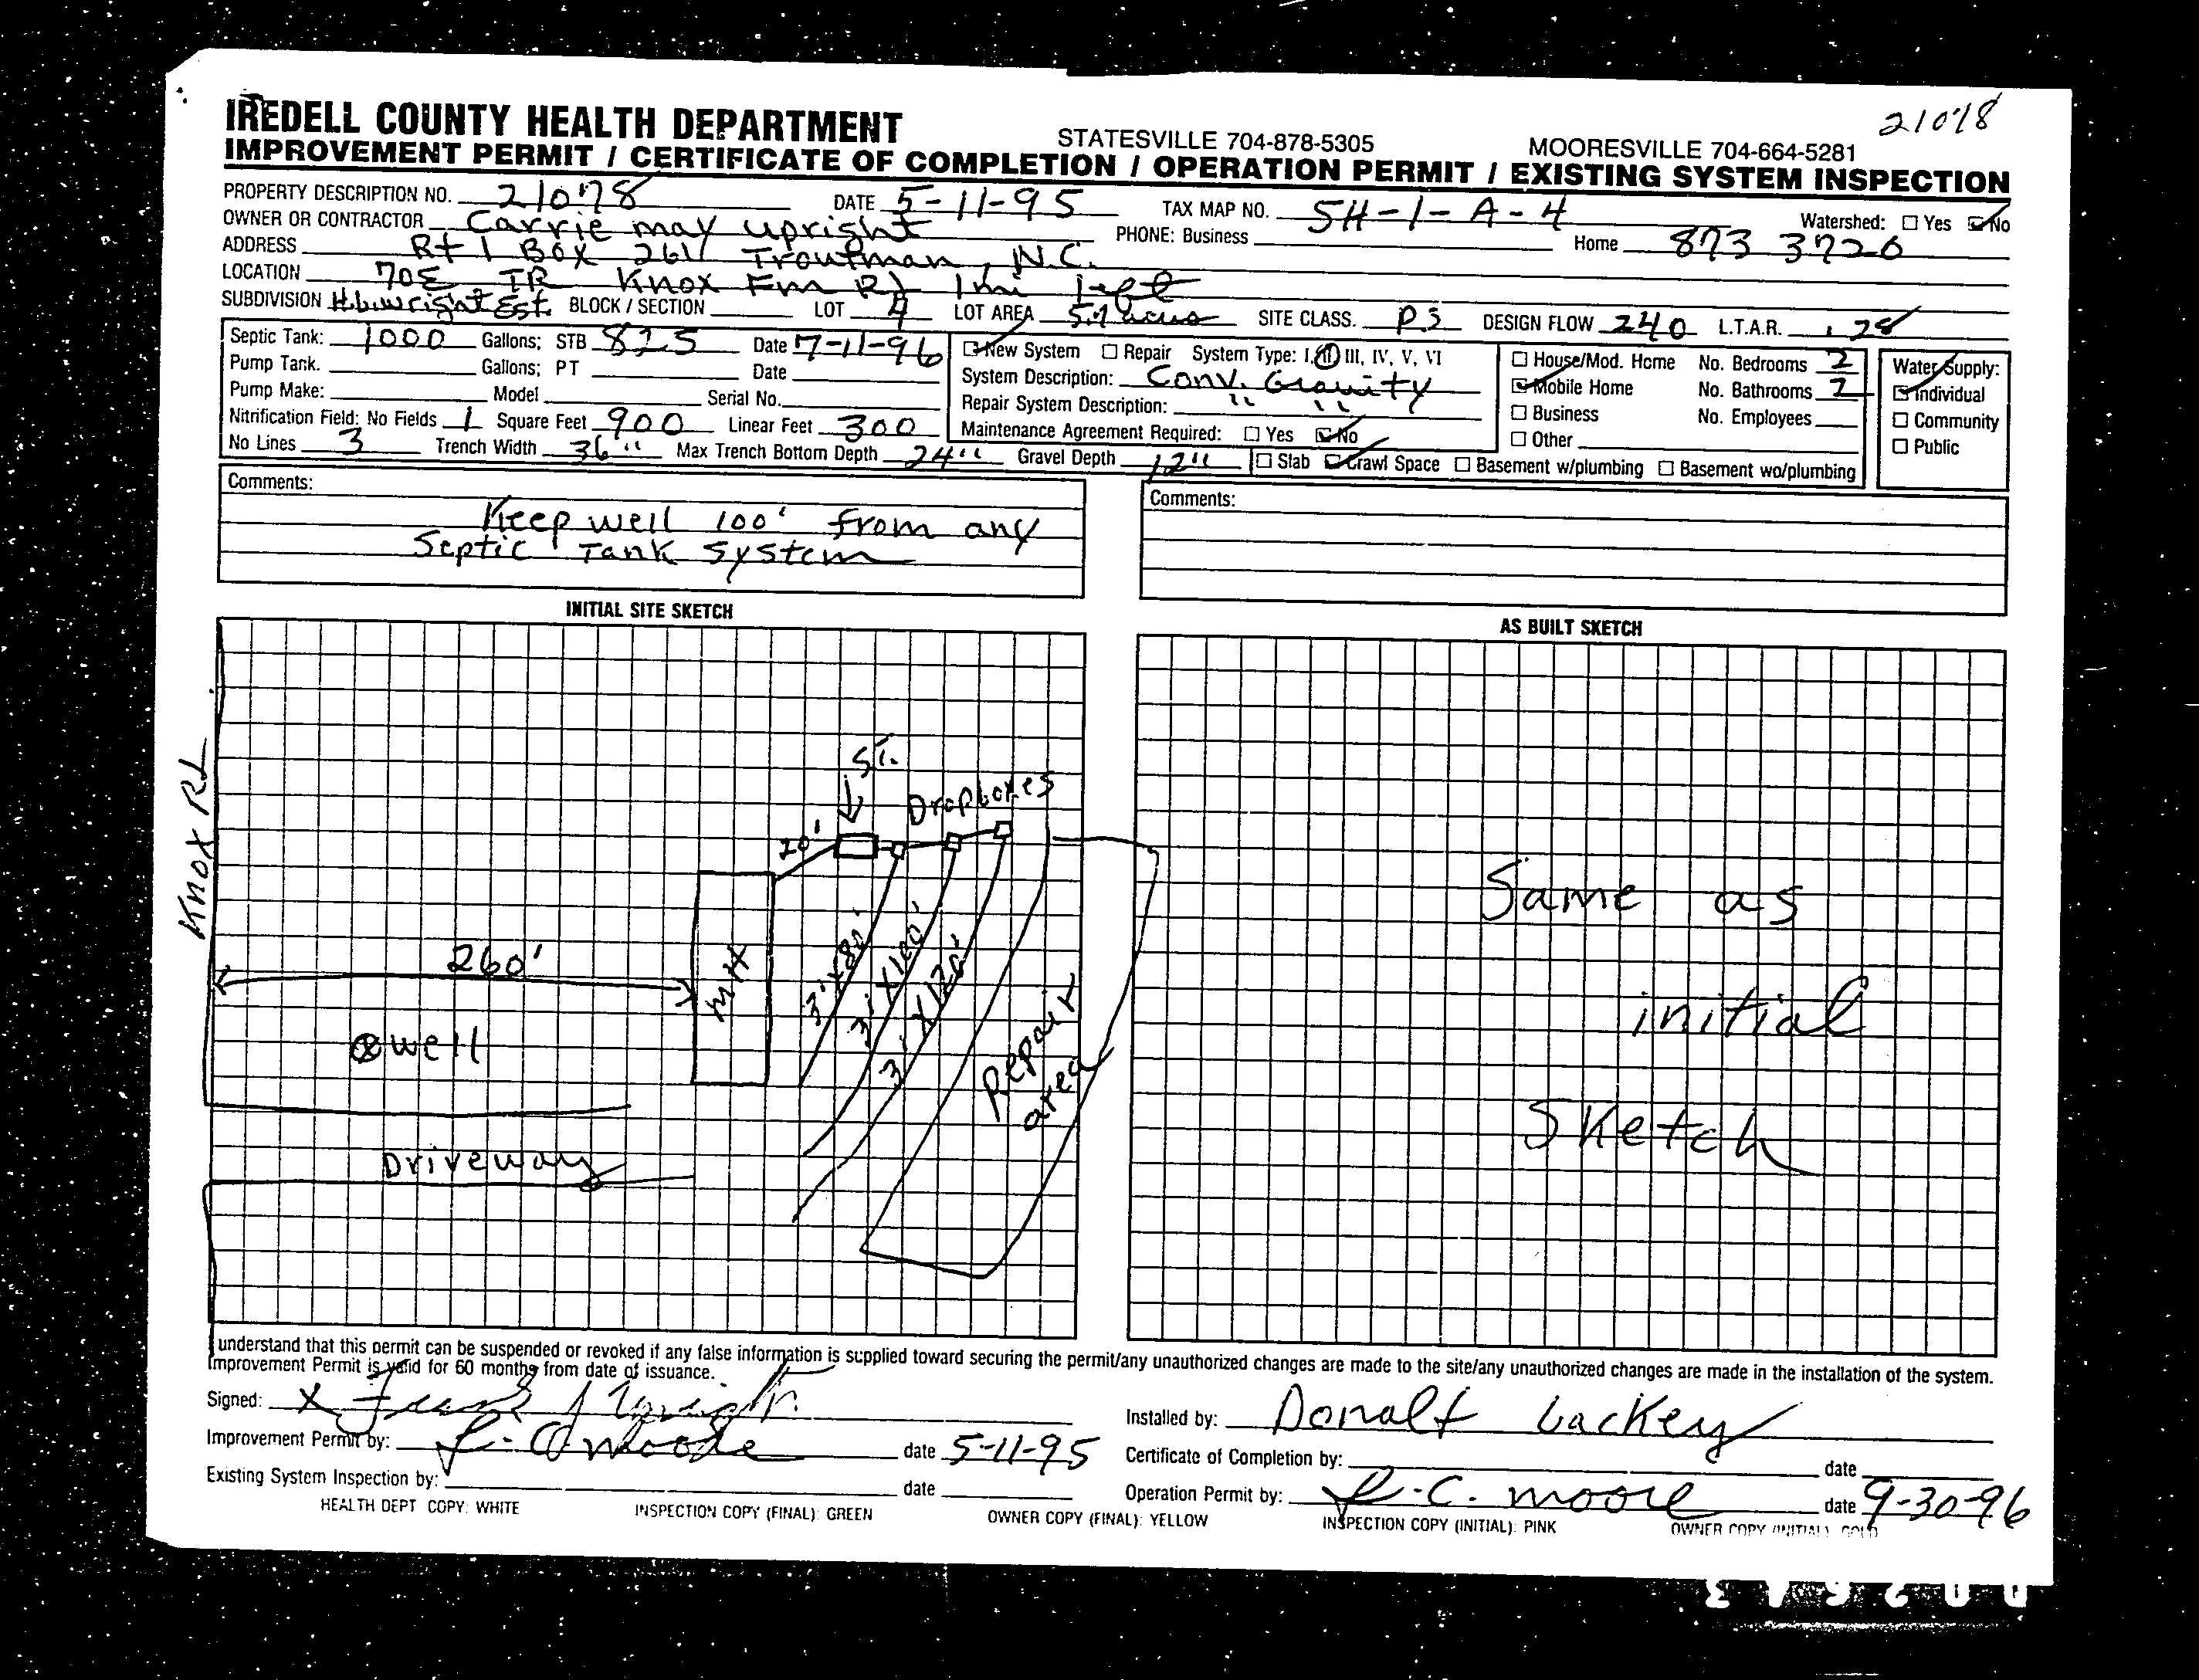 21078
IREDELL COUNTY HEALTH DEPARTMENT STATESVILLE 704-878-5305 MOORESVILLE 704-664-5281
IMPROVEMENT PERMIT / CERTIFICATE OF COMPLETION / OPERATION PERMIT / EXISTING SYSTEM INSPECTION
PROPERTY DESCRIPTION NO. 21078 DATE 5-11-95 TAX MAP NO. 5H-1-A-4 Watershed: Yes No
OWNER OR CONTRACTOR Carrie may upright PHONE: Business Home 873 3720
ADDRESS Rt 1 Box 261 Troutman, N.C.
LOCATION 70E TR Knox Fm Rd 1mi left
SUBDIVISION H.L. wright Est. BLOCK / SECTION LOT 4 LOT AREA 5.1 acres SITE CLASS. P.S DESIGN FLOW 240 L.T.A.R. .28
Septic Tank: 1000 Gallons; STB 825 Date 7-11-96
Pump Tank. Gallons; PT Date
Pump Make: Model Serial No.
Nitrification Field: No Fields 1 Square Feet 900 Linear Feet 300
No Lines 3 Trench Width 36" Max Trench Bottom Depth 24" Gravel Depth 12"
New System Repair System Type: I, II, III, IV, V, VI
System Description: Conv. Gravity
Repair System Description: " "
Maintenance Agreement Required: Yes No
Slab Crawl Space Basement w/plumbing Basement wo/plumbing
House/Mod. Home No. Bedrooms 2
Mobile Home No. Bathrooms 2
Business No. Employees
Other
Water Supply:
Individual
Community
Public
Comments:
Keep well 100' from any
Septic Tank System
Comments:
INITIAL SITE SKETCH
Knox Rd
S.T.
Dropboxes
20'
260'
MH
3'x80'
3'x100'
3'x120'
Repair
area
well
Driveway
AS BUILT SKETCH
Same as
initial
Sketch
I understand that this permit can be suspended or revoked if any false information is supplied toward securing the permit/any unauthorized changes are made to the site/any unauthorized changes are made in the installation of the system.
Improvement Permit is valid for 60 months from date of issuance.
Signed: X
Improvement Permit by: date 5-11-95
Existing System Inspection by: date
Installed by: Donalt Lackey
Certificate of Completion by: date
Operation Permit by: R.C. Moore date 9-30-96
HEALTH DEPT COPY: WHITE INSPECTION COPY (FINAL): GREEN OWNER COPY (FINAL): YELLOW INSPECTION COPY (INITIAL): PINK OWNER COPY (INITIAL): GOLD